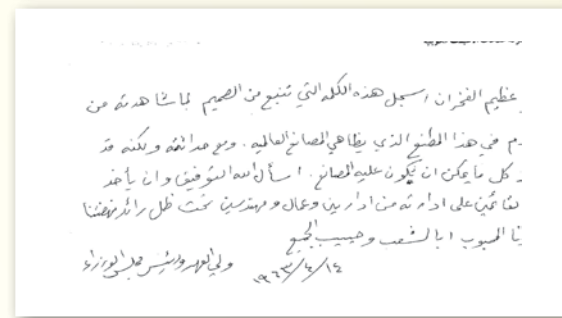 عظيم الفخر ان اسجل هذه الكلمه التي تنبع من الصميم لما شاهدته من
م في هذا المصنع الذي يظاهي المصانع العالميه . ومع حداثته ولكنه قد
كل ما يمكن ان يكون عليه المصانع . اسأل الله التوفيق وان يأخذ
لقائمين على ادارته من اداريين وعمال ومهندسين تحت ظل رائد نهضتنا
نا المحبوب ابا الشعب وحبيب الجميع
ولي العهد ورئيس مجلس الوزراء
١٩٦٣/٤/١٤